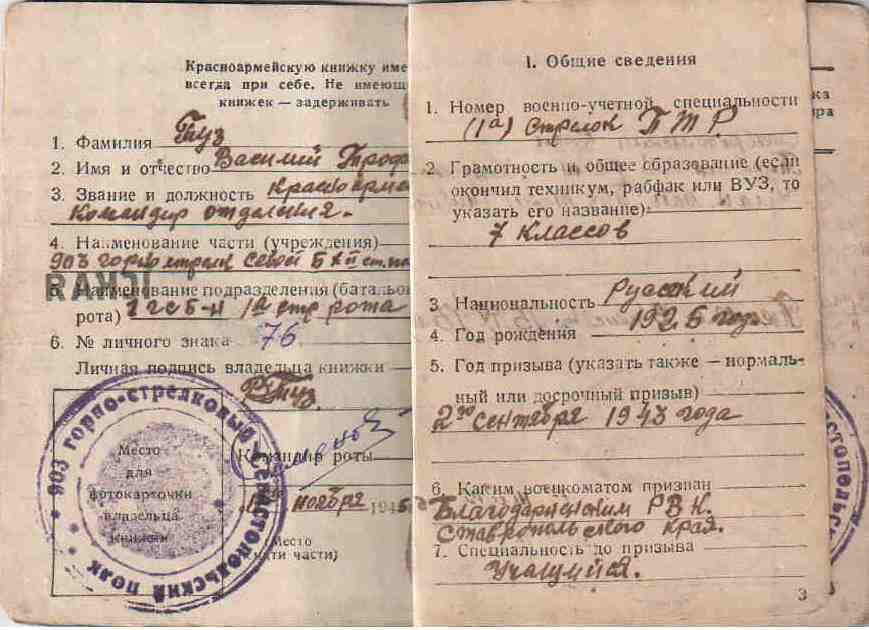 Красноармейскую книжку име
всегда при себе. Не имеющ
книжек — задерживать
1. Фамилия Туз
2. Имя и отчество Василий Троф
3. Звание и должность красноарме
Командир отделения.
4. Наименование части (учреждения)
903 горно стрелк
RAVNI
5. Наименование подразделения (батальо
рота) 1 гсб-н 1а стр рота
6. № личного знака 76
Личная подпись владельца книжки
Туз.
Место
для
фотокарточки
владельца
книжки
Командир роты
ноября 1945
(Место
печати части)
* 903 горно-стрелковый Севастопольский полк
I. Общие сведения
1. Номер военно-учетной специальности
(1а) Стрелок ПТР
2. Грамотность и общее образование (если
окончил техникум, рабфак или ВУЗ, то
указать его название):
7 классов
3. Национальность Русский
4. Год рождения 1925 год.
5. Год призыва (указать также — нормаль-
ный или досрочный призыв)
2го сентября 1943 года
6. Каким военкоматом призван
Благодарненским РВК.
Ставропольского края.
7. Специальность до призыва
Учащийся.
3